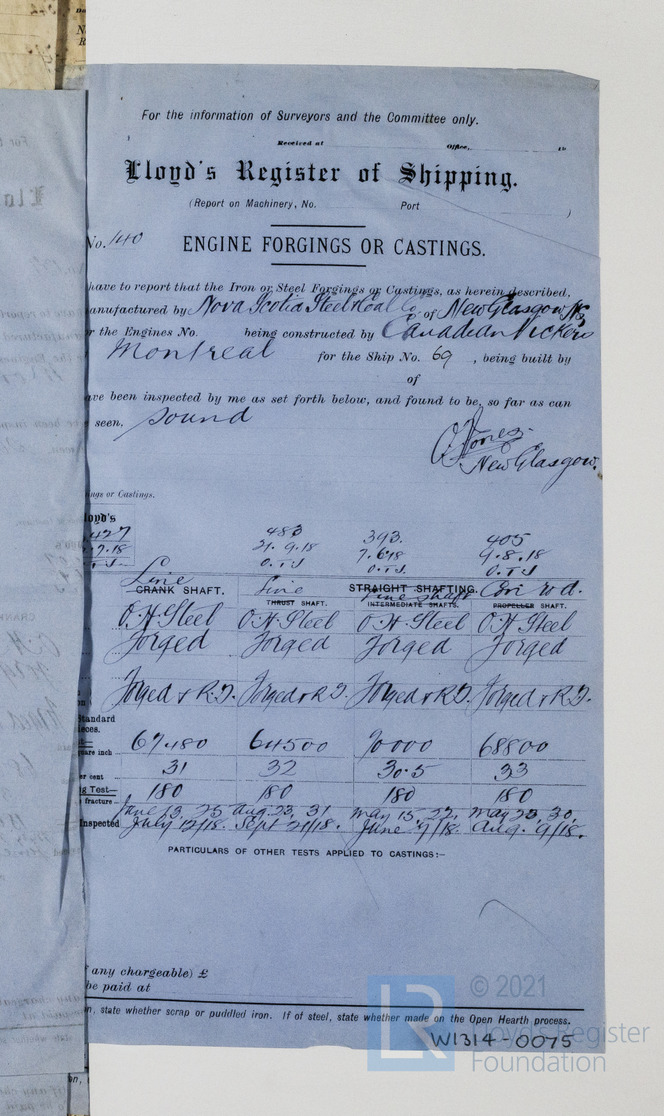 For the information of Surveyors and the Committee only.
Received at Office, 19
Lloyd's Register of Shipping.
(Report on Machinery, No. Port )
No. 140
ENGINE FORGINGS OR CASTINGS.
have to report that the Iron or Steel Forgings or Castings, as herein described,
anufactured by Nova Scotia Steel & Coal Co, of New Glasgow, N.S.
r the Engines No. being constructed by Canadian Vickers
Montreal for the Ship No. 69, being built by
of
ave been inspected by me as set forth below, and found to be, so far as can
seen, sound
O. Jones.
New Glasgow.
ings or Castings.
loyd's
427 483 393. 405
.7.18 21.9.18 7.6.18 9.8.18
.T.J. O.T.J O.T.J. O.T.J
Line Line Line Shaft Con rod.
CRANK SHAFT. STRAIGHT SHAFTING.
THRUST SHAFT. INTERMEDIATE SHAFTS. PROPELLER SHAFT.
O.H. Steel O.H. Steel O.H. Steel O.H. Steel
Forged Forged Forged Forged
Forged & R.T. Forged & R.T. Forged & R.T. Forged & R.T.
Standard
ieces.
uare inch 67480 64500 70000 68800
er cent 31 32 30.5 33
g Test— 180 180 180 180
fracture
June 13, 25 Aug. 23, 31 May 15, 22, May 23, 30,
Inspected July 12/18. Sept 21/18. June 7/18. Aug. 9/18.
PARTICULARS OF OTHER TESTS APPLIED TO CASTINGS:—
any chargeable) £
be paid at
n, state whether scrap or puddled iron. If of steel, state whether made on the Open Hearth process.
W1314-0075
LR
© 2021
Lloyd's Register
Foundation